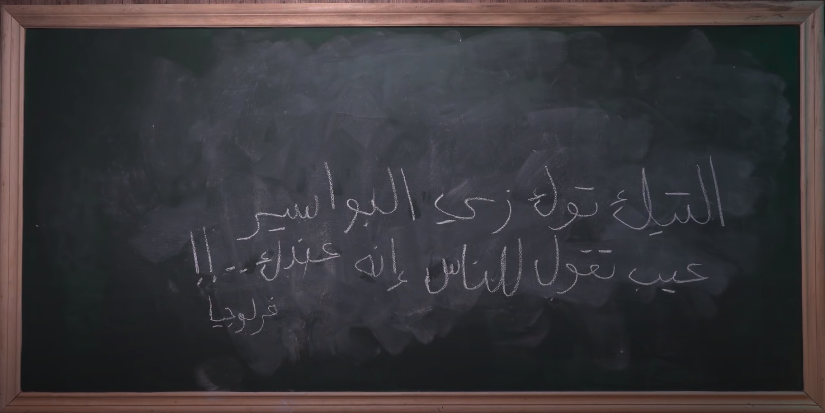 التيك توك زي البواسير
عيب تقول للناس إنه عندك..!!
فرلوجيا